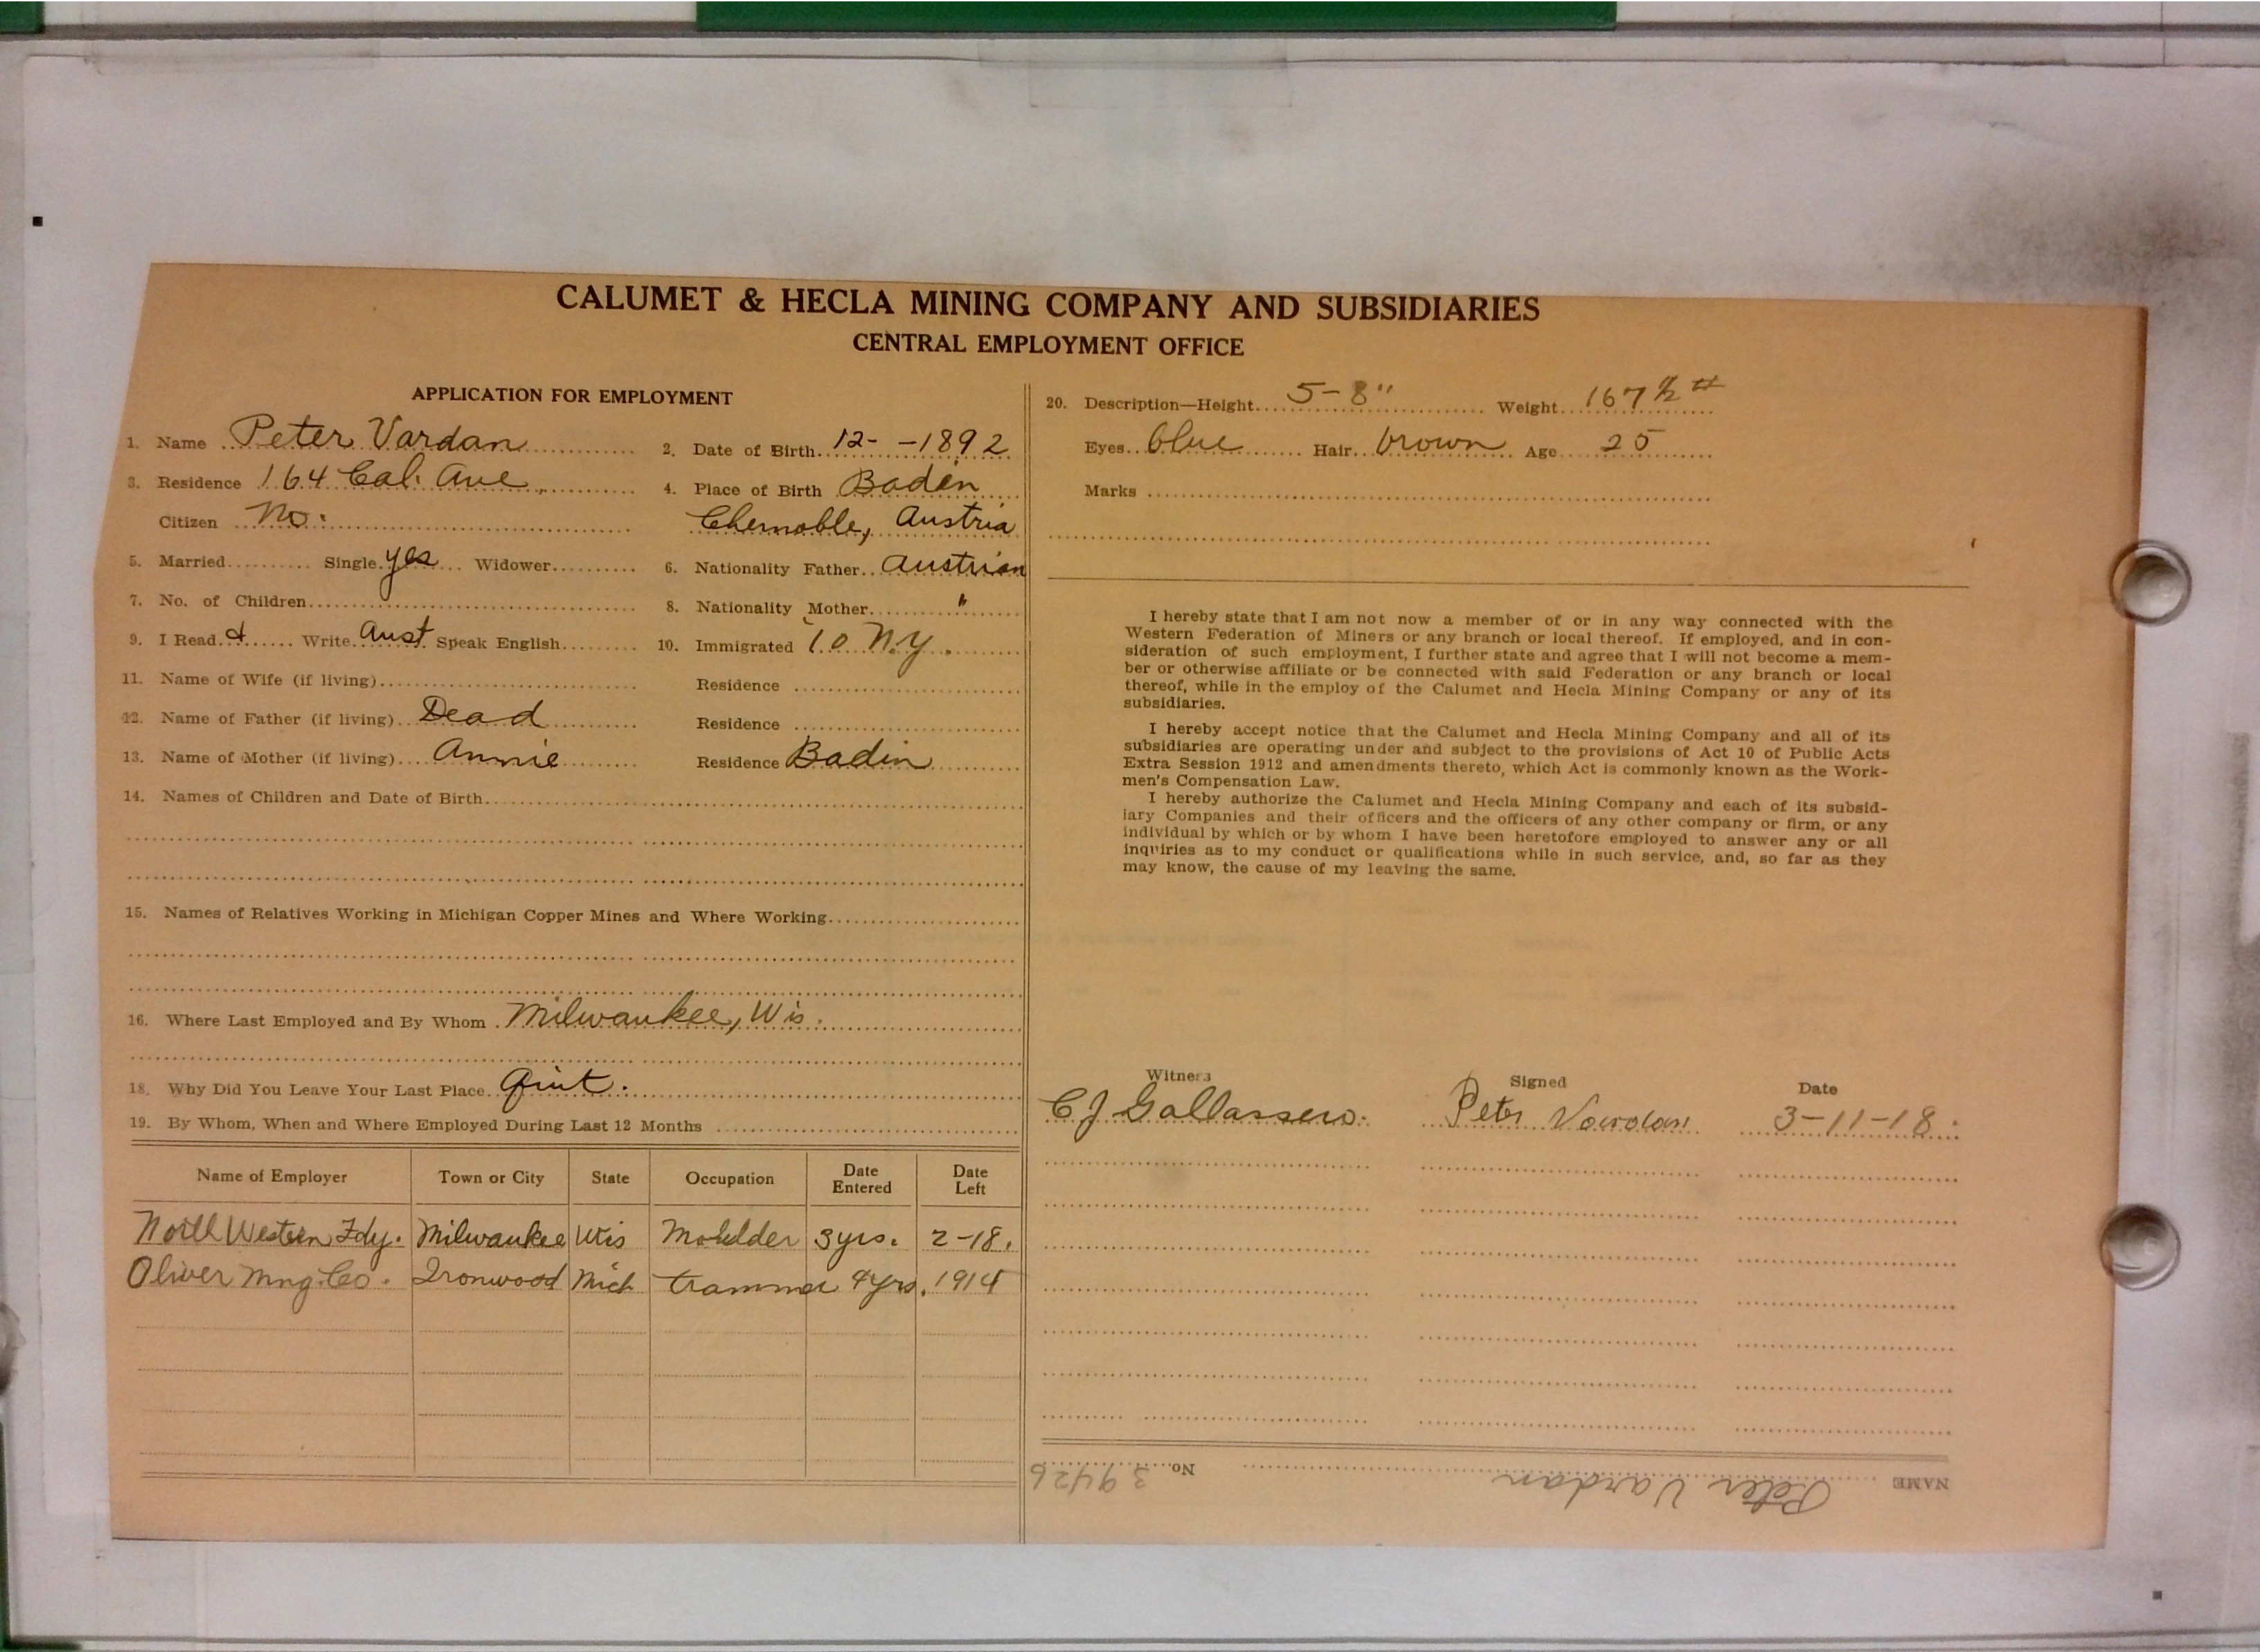 CALUMET & HECLA MINING COMPANY AND SUBSIDIARIES
CENTRAL EMPLOYMENT OFFICE
APPLICATION FOR EMPLOYMENT
1. Name Peter Vardan 2. Date of Birth 12- -1892
3. Residence 164 Cal. Ave 4. Place of Birth Badin
Citizen No. Chernoble, Austria
5. Married Single yes Widower 6. Nationality Father Austrian
7. No. of Children 8. Nationality Mother "
9. I Read & Write Aust Speak English 10. Immigrated '10 N.Y.
11. Name of Wife (if living) Residence
12. Name of Father (if living) Dead Residence
13. Name of Mother (if living) Annie Residence Badin
14. Names of Children and Date of Birth
15. Names of Relatives Working in Michigan Copper Mines and Where Working
16. Where Last Employed and By Whom Milwaukee, Wis.
18. Why Did You Leave Your Last Place Quit.
19. By Whom, When and Where Employed During Last 12 Months
Name of Employer Town or City State Occupation Date Entered Date Left
North Western Fdy. Milwaukee Wis Moulder 3 yrs. 2-18.
Oliver Mng. Co. Ironwood Mich trammer 4 yrs. 1914
20. Description—Height 5-8" Weight 167 ½ #
Eyes blue Hair brown Age 25
Marks
I hereby state that I am not now a member of or in any way connected with the
Western Federation of Miners or any branch or local thereof. If employed, and in con-
sideration of such employment, I further state and agree that I will not become a mem-
ber or otherwise affiliate or be connected with said Federation or any branch or local
thereof, while in the employ of the Calumet and Hecla Mining Company or any of its
subsidiaries.
I hereby accept notice that the Calumet and Hecla Mining Company and all of its
subsidiaries are operating under and subject to the provisions of Act 10 of Public Acts
Extra Session 1912 and amendments thereto, which Act is commonly known as the Work-
men's Compensation Law.
I hereby authorize the Calumet and Hecla Mining Company and each of its subsid-
iary Companies and their officers and the officers of any other company or firm, or any
individual by which or by whom I have been heretofore employed to answer any or all
inquiries as to my conduct or qualifications while in such service, and, so far as they
may know, the cause of my leaving the same.
Witness Signed Date
C J Gallassero. Peter Vardan 3-11-18.
NAME Peter Vardan No. 39426